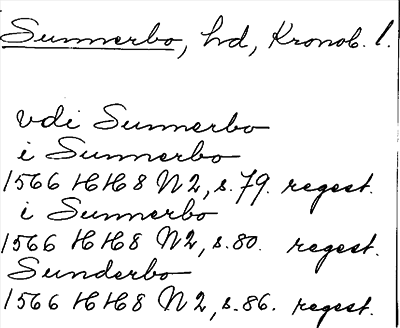 Sunnerbo, hd, Kronob. l.
vdi Sunnerbo
i Sunnerbo
1566 HH8 N2, s.79. regest.
i Sunnerbo
1566 HH8 N2, s.80. regest.
Sunderbo
1566 HH8 N2, s.86. regest.